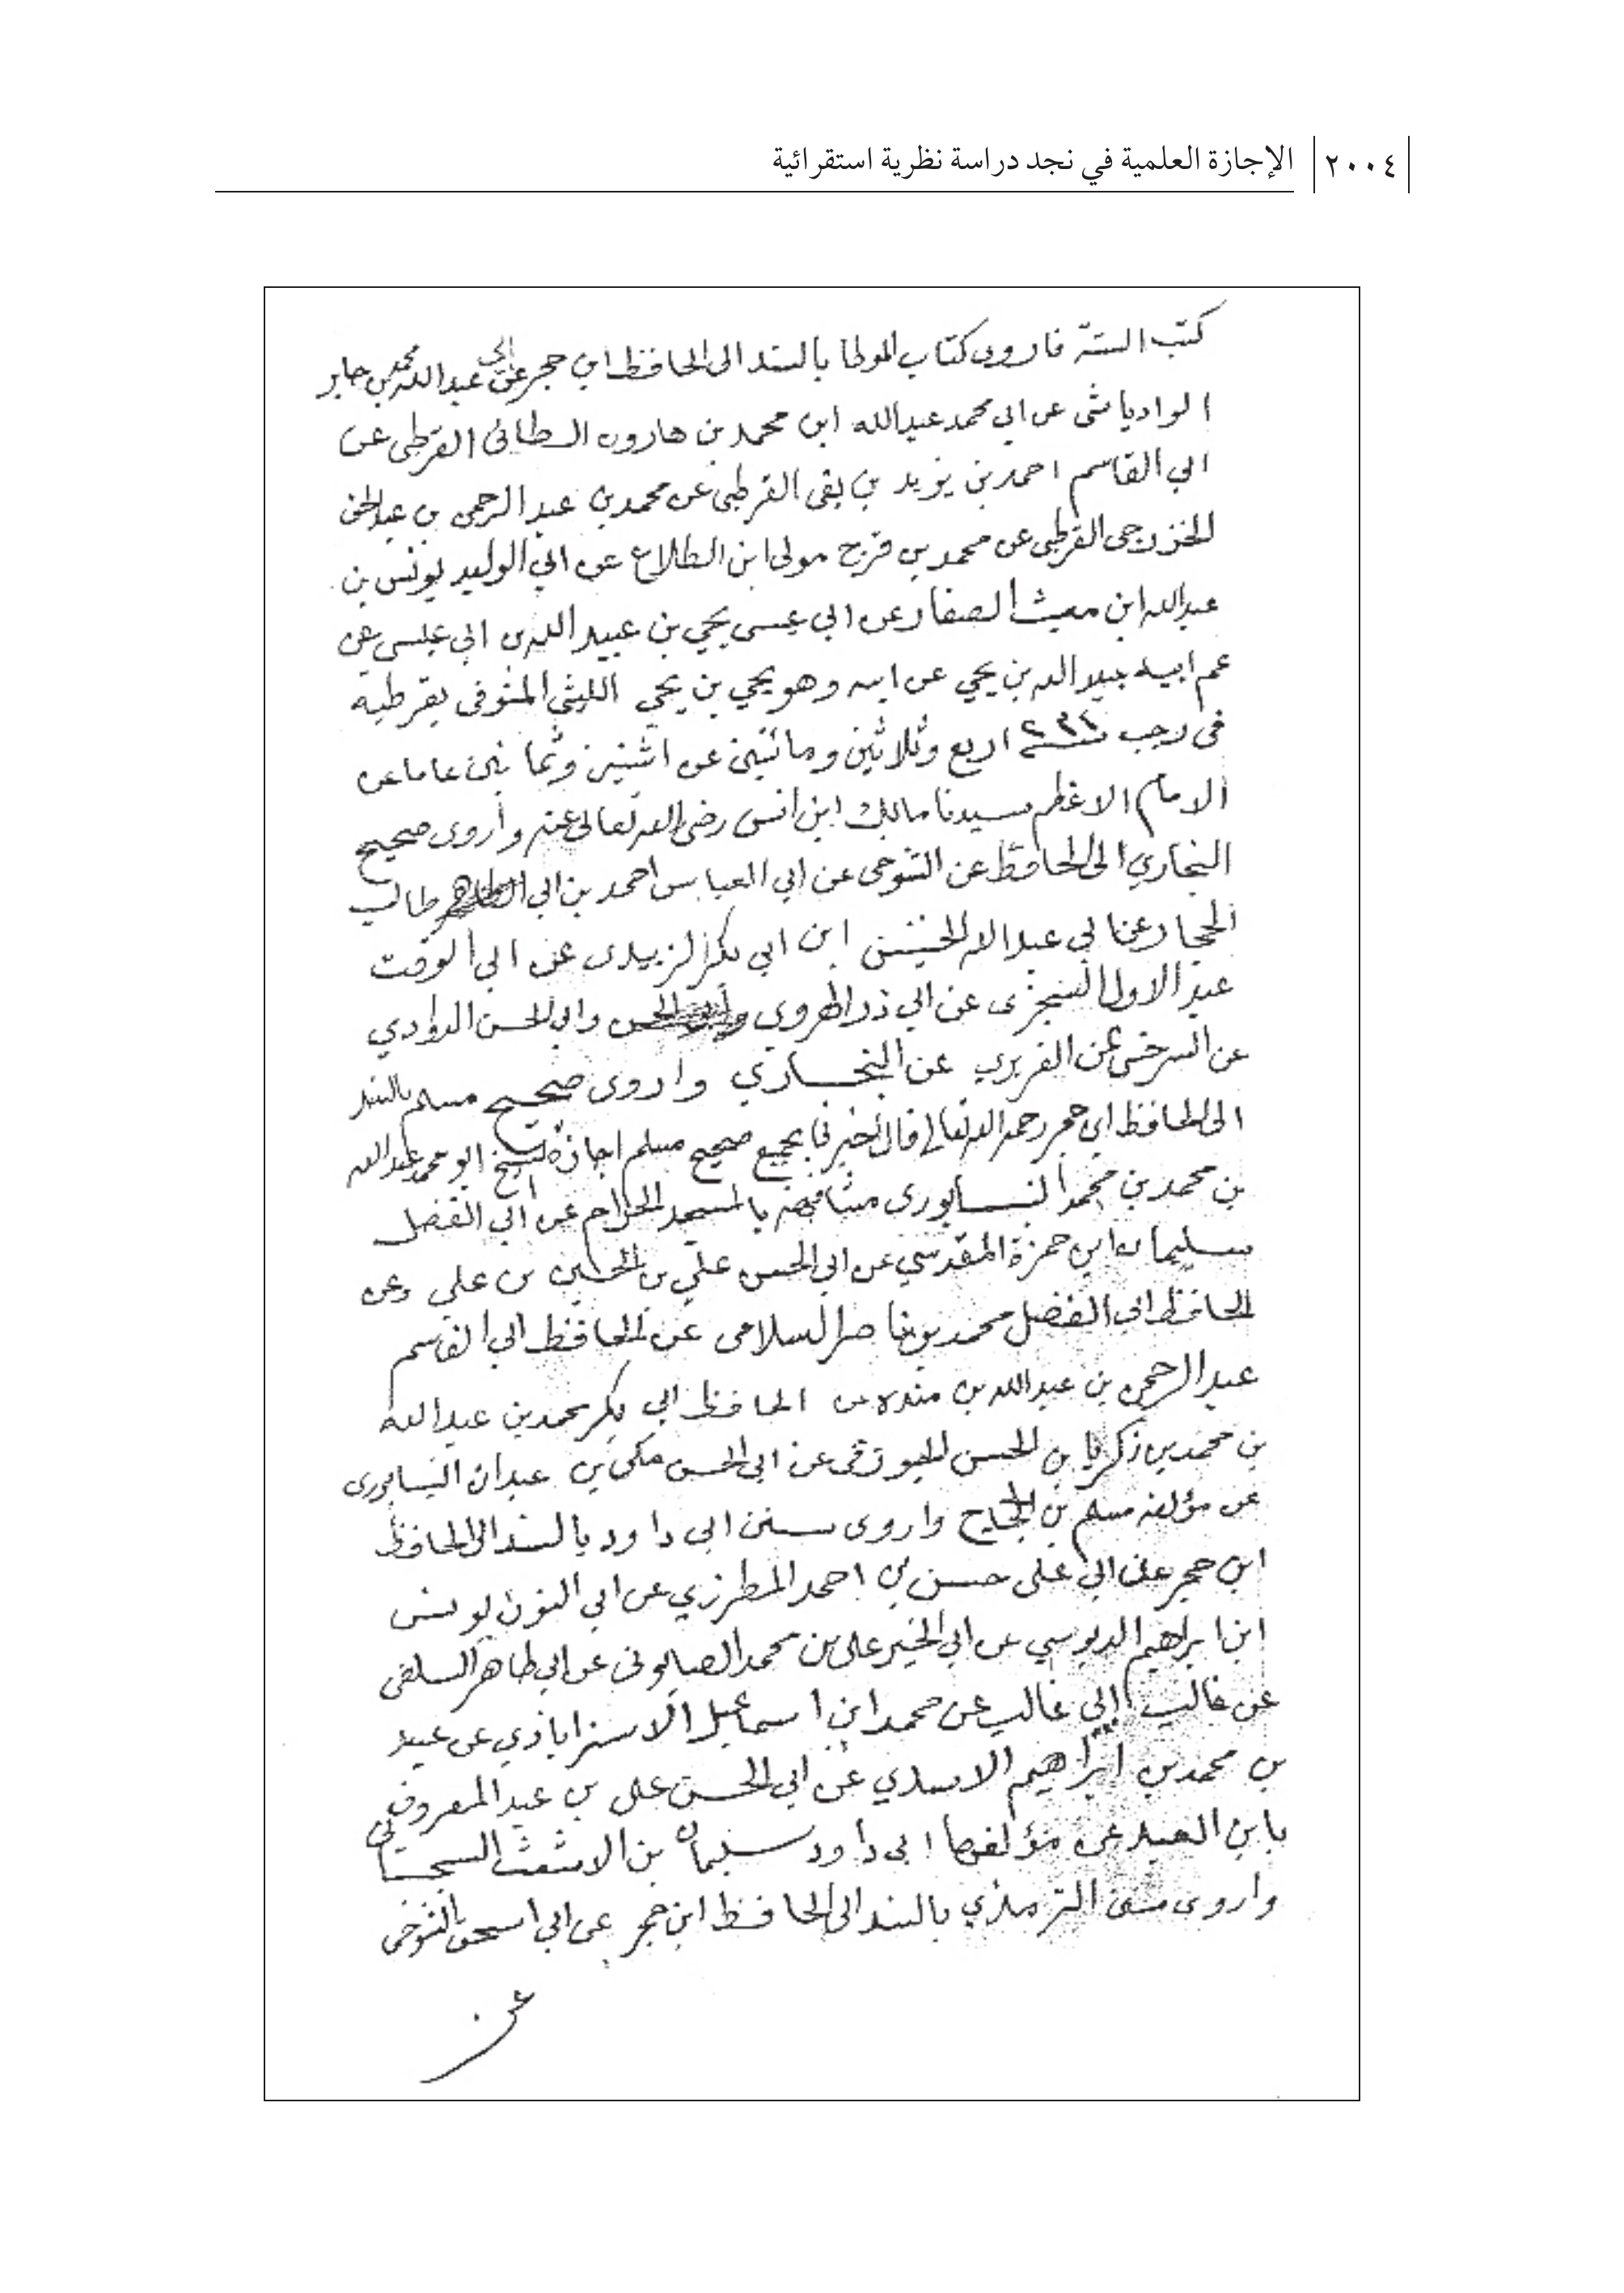 ٢٠٠٤ الإجازة العلمية في نجد دراسة نظرية استقرائية
كتب الستة فاروى كتاب الموطا بالسند الى الحافظ ابن حجر عن ابي عبدالله محمد بن جابر
الوادياشى عن ابي محمد عبدالله ابن محمد بن هارون الطائى القرطبى عن
ابي القاسم احمد بن يزيد بن بقى القرطبى عن محمد بن عبد الرحمن بن عبد الحق
الخزرجى القرطبى عن محمد بن فرج مولى ابن الطلاع عن ابي الوليد يونس بن
عبدالله ابن مغيث الصفار عن ابي عيسى يحيي بن عبيد الله بن ابي عيسى عن
عم ابيه عبيد الله بن يحيي عن ابيه وهو يحيي بن يحيى الليثى المتوفى بقرطبة
فى رجب سنة ٢٣٤ اربع وثلاثين ومائتين عن اثنين وثمانين عاما عن
الامام الاعظم سيدنا مالك ابن انس رضى الله تعالى عنه وأروى صحيح
البخاري الى الحافظ عن التنوخى عن ابي العباس احمد بن ابي طالب
الحجار عن ابي عبد الله الحسين ابن ابي بكر الزبيدى عن ابي الوقت
عبد الاول السجزى عن ابي ذر الهروى وابي الحسن الداؤدي
عن السرخسى عن الفربرى عن البخاري واروى صحيح مسلم بالسند
الى الحافظ ابن حجر رحمه الله تعالى قال اخبرنا بجميع صحيح مسلم اجازة الشيخ ابو محمد عبدالله
بن محمد بن محمد النسابورى مشافهة بالمسجد الحرام عن ابي الفضل
سليمان ابن حمزة المقدسي عن ابي الحسن علي بن الحسين بن علي وعن
الحافظ ابي الفضل محمد بن ناصر السلامى عن الحافظ ابي القاسم
عبد الرحمن بن عبدالله بن منده عن الحافظ ابي بكر محمد بن عبدالله
بن محمد بن زكريا بن الحسن الجوزقى عن ابي الحسن مكى بن عبدان النيسابورى
عن مؤلفه مسلم بن الحجاج واروى سنن ابى داود بالسند الى الحافظ
ابن حجر عن ابي على حسن بن احمد المطرزي عن ابي النون يونس
ابن ابراهيم الدبوسي عن ابي الخير على بن محمد الصابونى عن ابي طاهر السلفى
عن غالب ابي غالب عن محمد ابن اسماعيل الاستراباذي عن عبيد
بن محمد بن ابراهيم الاسدي عن ابي الحسن على بن عبد المعروف
بابن العبد عن مؤلفها ابى داود سليمان بن الاشعث السجستاني
واروى سنن الترمذي بالسند الى الحافظ ابن حجر عن ابي اسحق التنوخى
عن